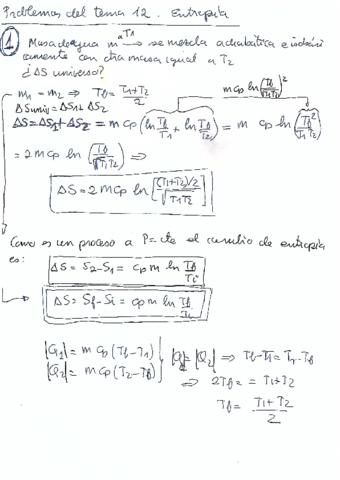 Problemas del tema 12. Entropía
1 Masa de agua m a T1 → se mezcla adiabática e isobári
camente con otra masa igual a T2
¿ΔS universo?
m1 = m2 ⇒ Tf = (T1+T2)/2
ΔSuniv = ΔS1 + ΔS2
m cp ln (Tf/√T1T2)²
ΔS = ΔS1 + ΔS2 = m cp (ln Tf/T1 + ln Tf/T2) = m cp ln (Tf²/T1T2)
= 2 m cp ln (Tf/√T1T2) ⇒
ΔS = 2 m cp ln [(T1+T2)/2 / √T1T2]
Como es un proceso a P=cte el cambio de entropía
es:
ΔS = S2 - S1 = cp m ln Tf/Ti
ΔS = Sf - Si = cp m ln Tf/Ti
|Q1| = m cp (Tf - T1)
|Q2| = m cp (T2 - Tf)
|Q1| = |Q2| ⇒ Tf - T1 = T2 - Tf
⇒ 2Tf = = T1 + T2
Tf = (T1 + T2)/2